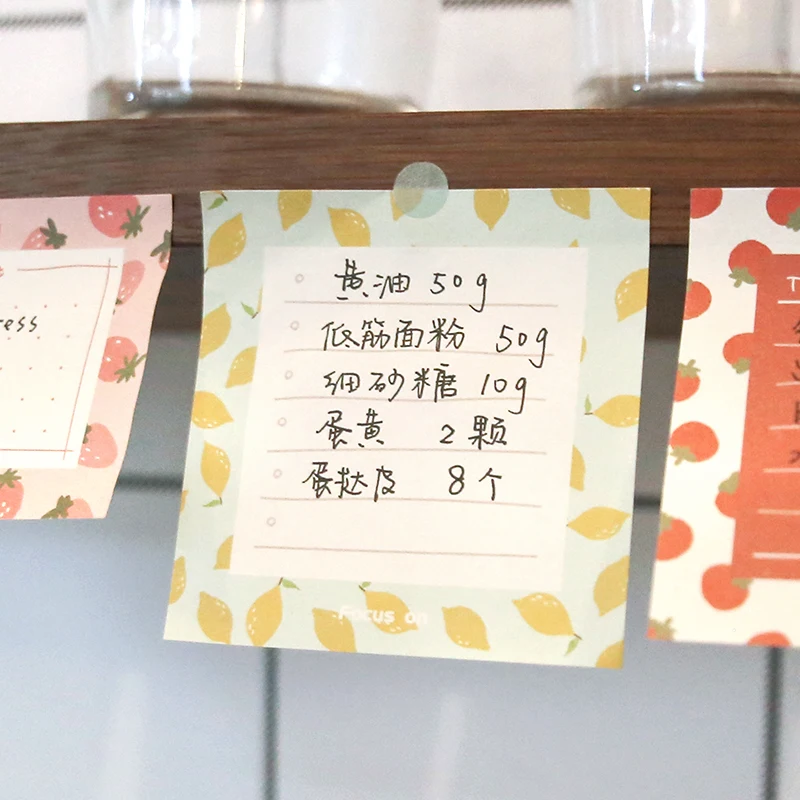 ress
黄油 50g
低筋面粉 50g
细砂糖 10g
蛋黄 2颗
蛋挞皮 8个
Focus on